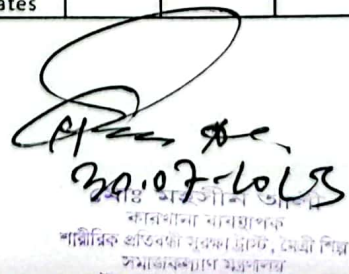 ates
30.07.2025
মোঃ মহসীন আলী
কারখানা ব্যবস্থাপক
শারীরিক প্রতিবন্ধী সুরক্ষা ট্রাস্ট, মৈত্রী শিল্প
সমাজকল্যাণ মন্ত্রণালয়